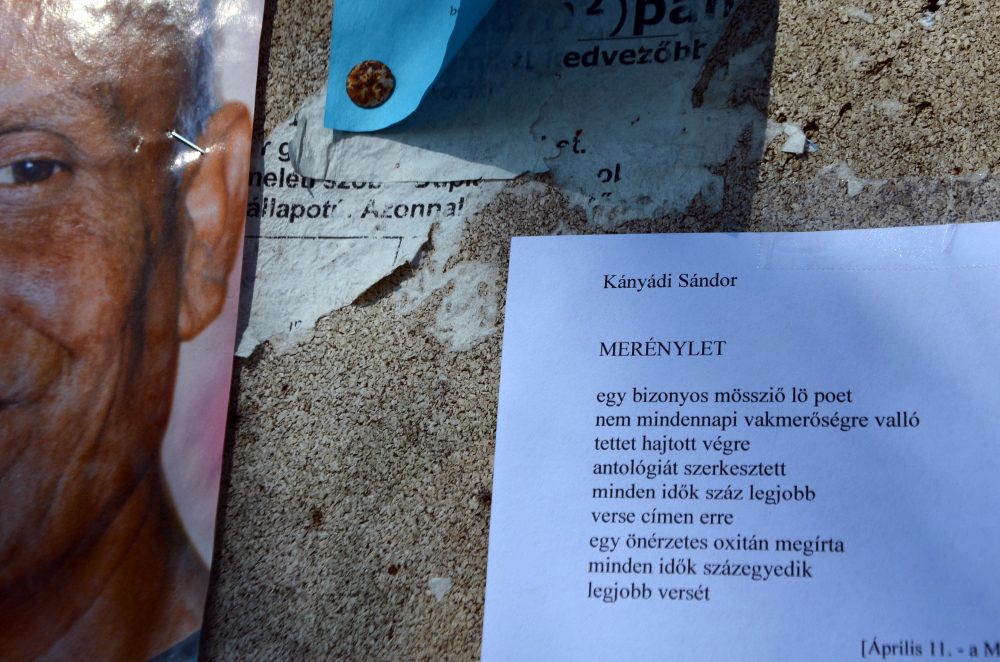 ²)pan
kedvezőbb
et.
r g
ol
állapotú. Azonnal
Kányádi Sándor
MERÉNYLET
egy bizonyos mösszió lö poet
nem mindennapi vakmerőségre valló
tettet hajtott végre
antológiát szerkesztett
minden idők száz legjobb
verse címen erre
egy önérzetes oxitán megírta
minden idők százegyedik
legjobb versét
[Április 11. - a M